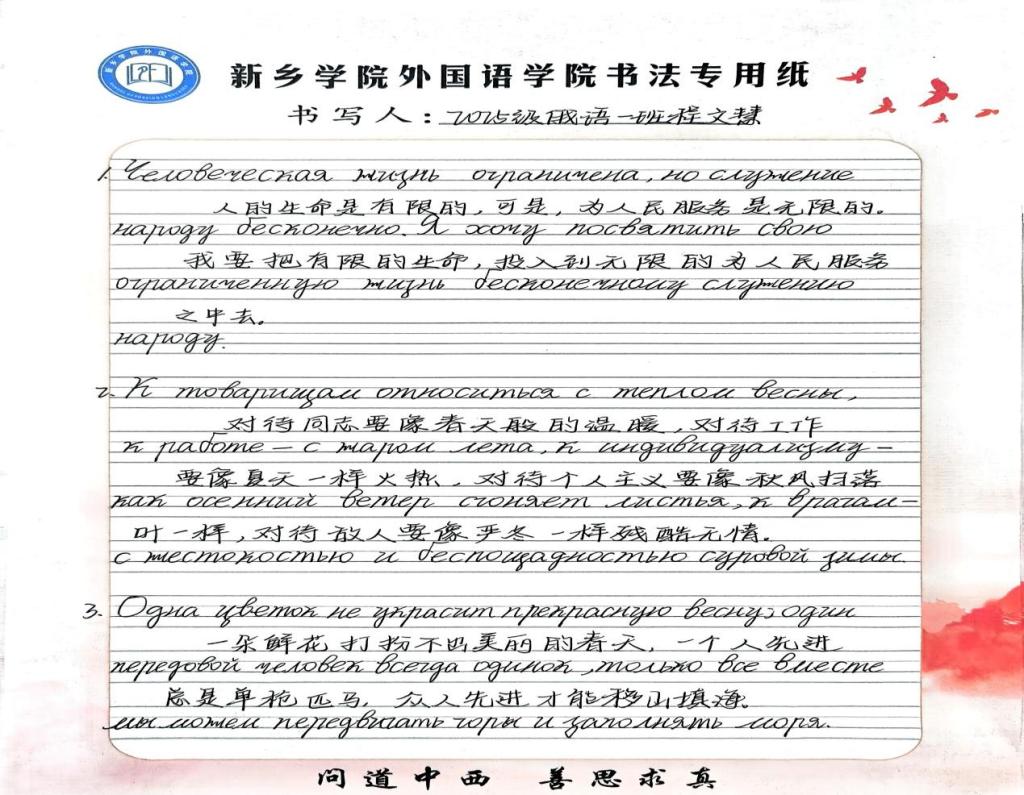 新乡学院外国语学院书法专用纸
书写人：2025级俄语一班程文慧
1. Человеческая жизнь ограничена, но служение
人的生命是有限的，可是，为人民服务是无限的。
народу бесконечно. Я хочу посвятить свою
我要把有限的生命，投入到无限的为人民服务
ограниченную жизнь бесконечному служению
之中去。
народу.
2. К товарищам относиться с теплом весны,
对待同志要像春天般的温暖，对待工作
к работе – с жаром лета, к индивидуализму –
要像夏天一样火热，对待个人主义要像秋风扫落
как осенний ветер сгоняет листья, к врагам –
叶一样，对待敌人要像严冬一样残酷无情。
с жестокостью и беспощадностью суровой зимы.
3. Одна цветок не украсит прекрасную весну; один
一朵鲜花打扮不出美丽的春天，一个人先进
передовой человек всегда одинок, только все вместе
总是单枪匹马，众人先进才能移山填海。
мы можем передвигать горы и заполнять моря.
问道中西 善思求真